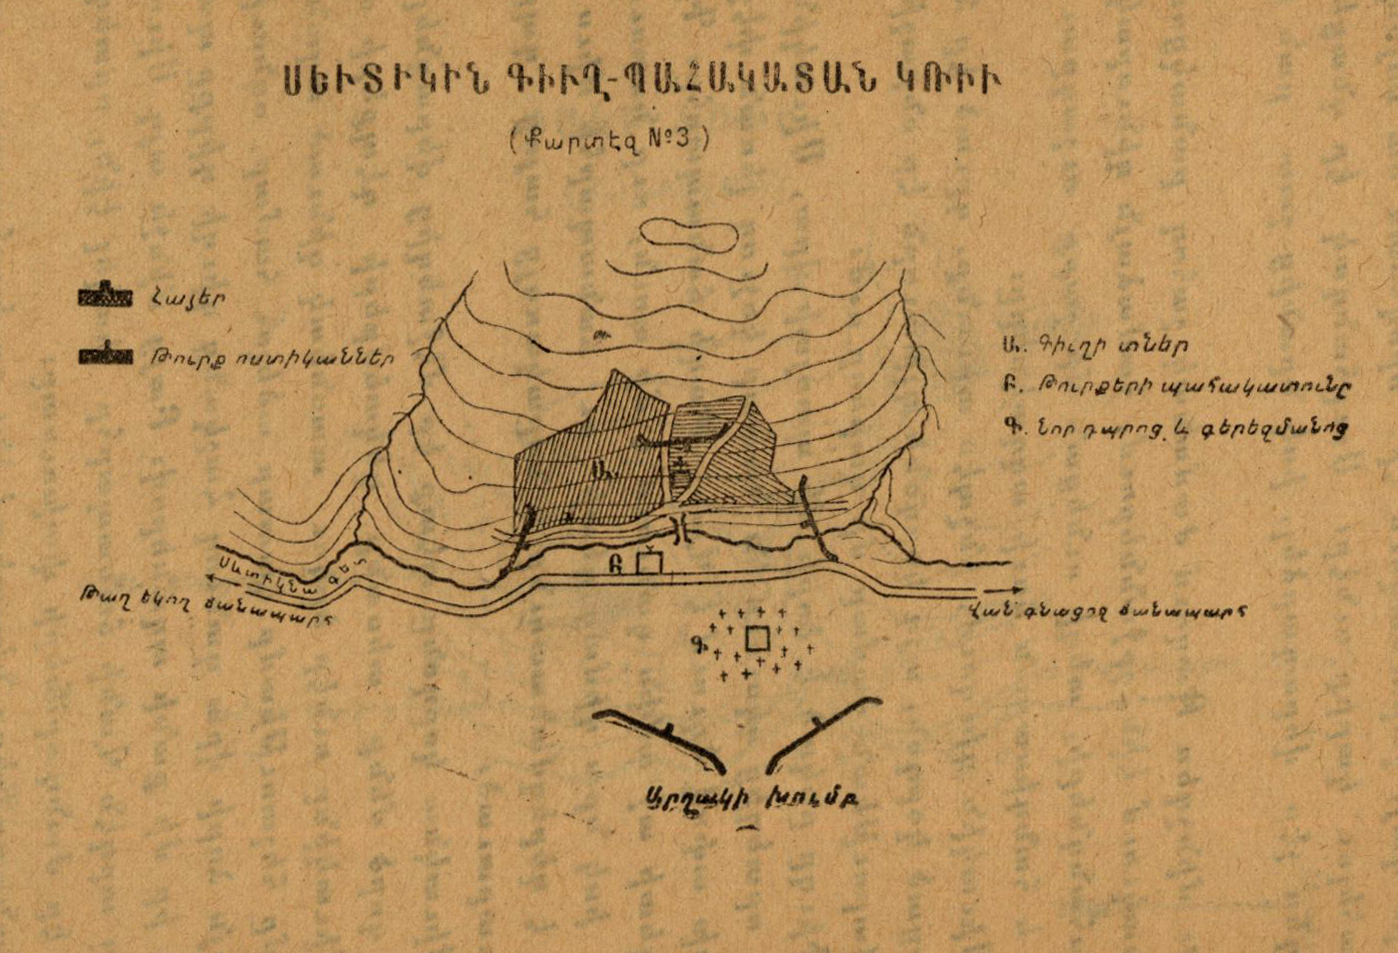 ՍԵՒՏԻԿԻՆ ԳԻՒՂ-ՊԱՀԱԿԱՏԱՆ ԿՌԻՒ
(Քարտէզ №3)
Հայեր
Թուրք ոստիկաններ
Ա. Գիւղի տներ
Բ. Թուրքերի պահակատունը
Գ. Նոր դպրոց և գերեզմանոց
Ա.
Բ
Սևտիկնա գետ
Թաղ եկող ճանապարհ
Վան գնացող ճանապարհ
Գ.
Արղակի խումբ